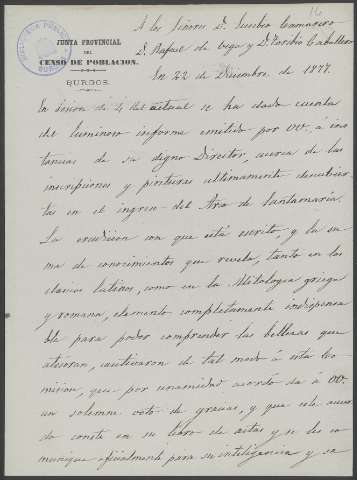 A los Señores D. Eusebio Camarero
D. Rafael de Vega y D. Toribio Caballero
JUNTA PROVINCIAL
DEL
CENSO DE POBLACION.
BURGOS.
En 22 de Diciembre de 1877.
En sesion de 4 del actual se ha dado cuenta
del luminoso informe emitido por VV. á ins
tancias de su digno Director, acerca de las
inscripciones y pinturas ultimamente descubier
tas en el ingreso del Arco de Santamaría.
La erudicion con que está escrito y la su
ma de conocimientos que revela, tanto en los
clasicos latinos, como en la Mitología griega
y romana, elemento completamente indispensa
ble para poder comprender las bellezas que
atesoran, cautivaron de tal modo á esta Co
mision, que por unanimidad acordó dar á VV.
un solemne voto de gracias, y que este acuer
do conste en su libro de actas y se les co
munique oficialmente para su inteligencia y sa